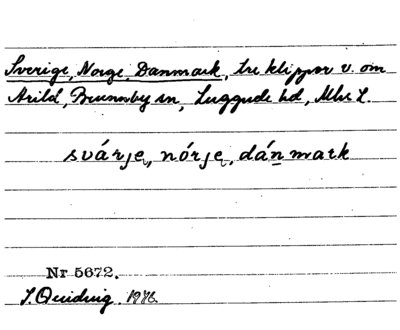 Sverige, Norge, Danmark, tre klippor v. om
Arild, Brunnby sn, Luggude hd, Mlhs L.
svárję, nórję, dánmark
Nr 5672.
1976.